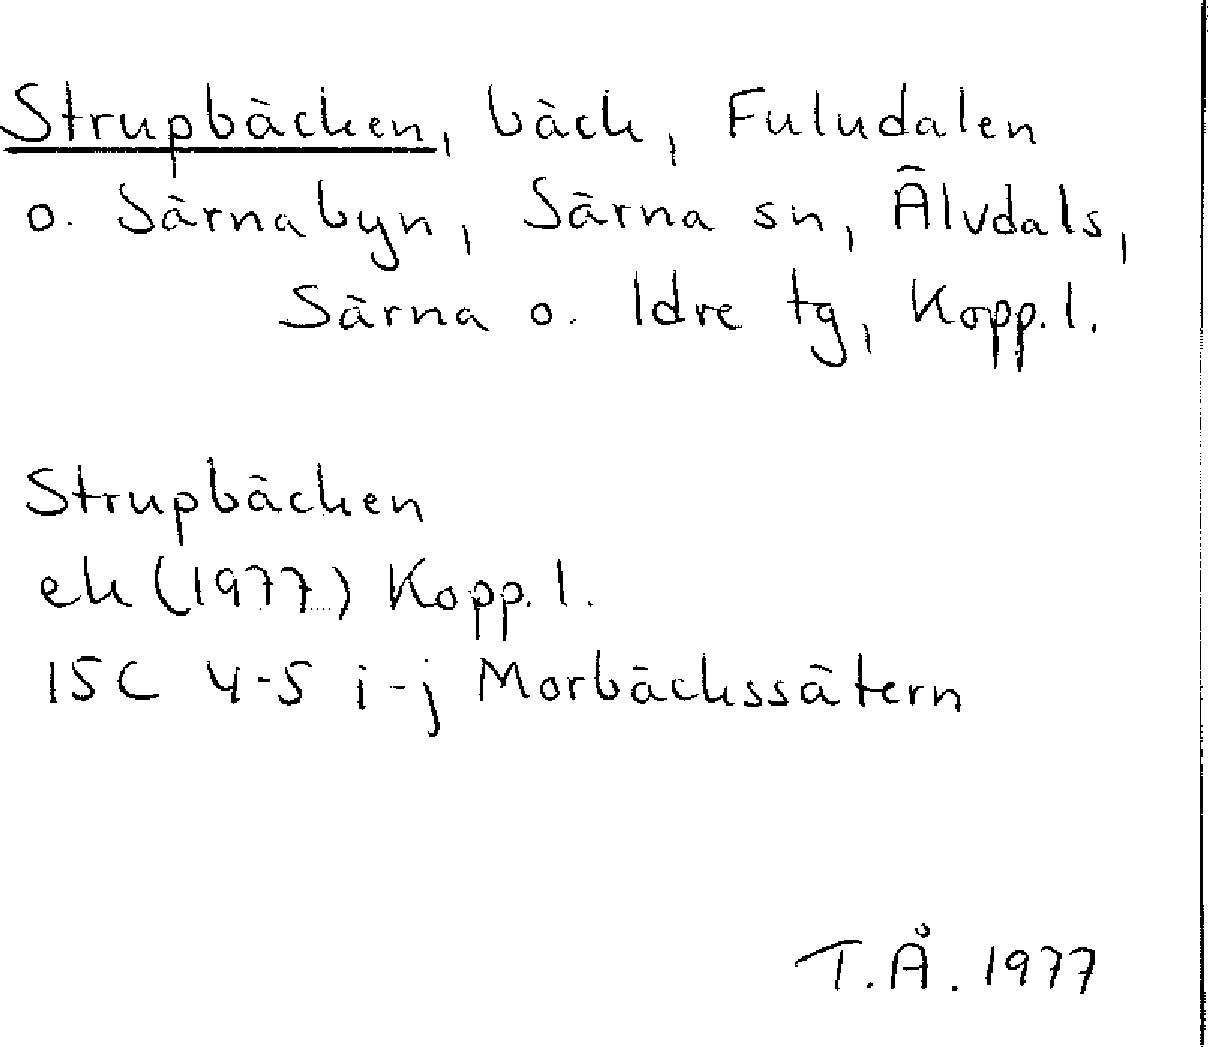 Strupbäcken, bäck, Fuludalen
o. Särnabyn, Särna sn, Älvdals,
Särna o. Idre tg, Kopp. l.
Strupbäcken
ek (1977) Kopp. l.
15C 4-5 i-j Morbäckssätern
T.Å. 1977